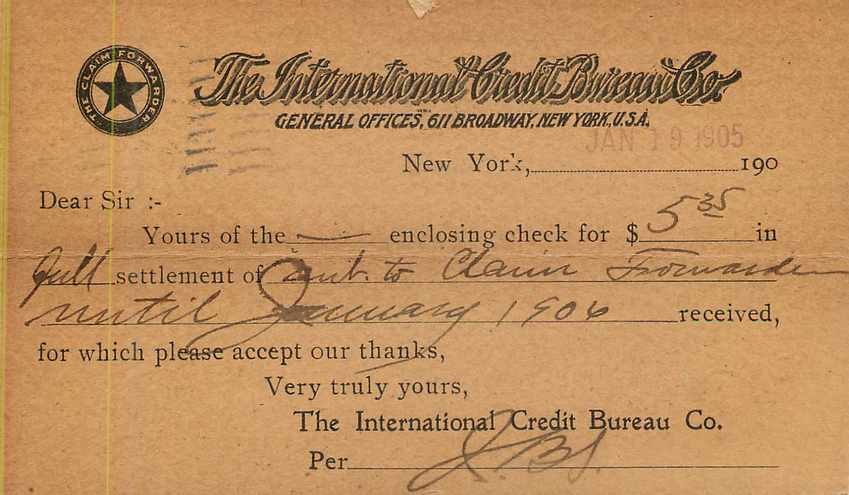 THE CLAIM FORWARDER
The International Credit Bureau Co.
GENERAL OFFICES, 611 BROADWAY, NEW YORK, U.S.A.
JAN 19 1905
New York, 190
Dear Sir :-
Yours of the — enclosing check for $ 5 35 in
full settlement of to Claim Forwarder
until January 1906 received,
for which please accept our thanks,
Very truly yours,
The International Credit Bureau Co.
Per